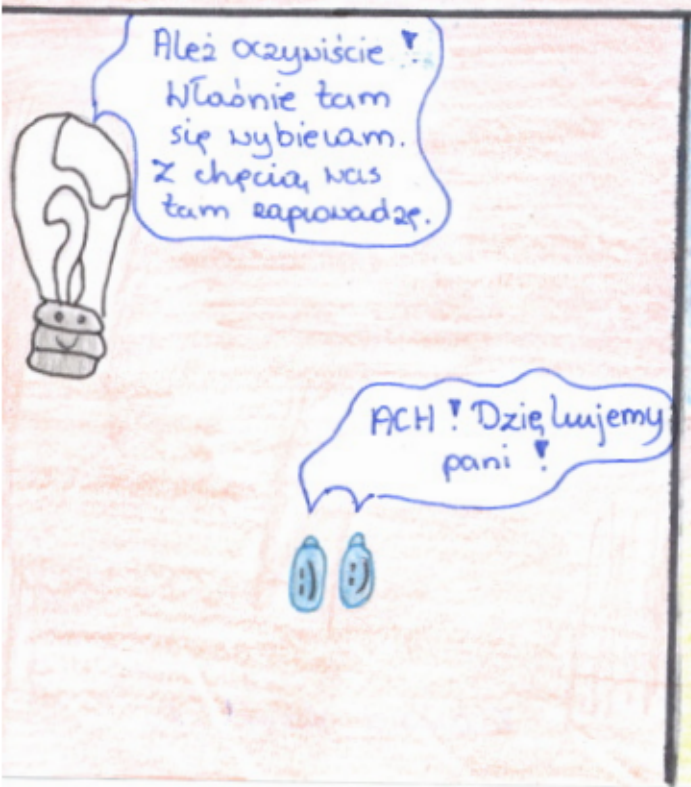 Ależ oczywiście !
Właśnie tam
się wybieram.
Z chęcią was
tam zaprowadzę.
ACH ! Dziękujemy
pani !